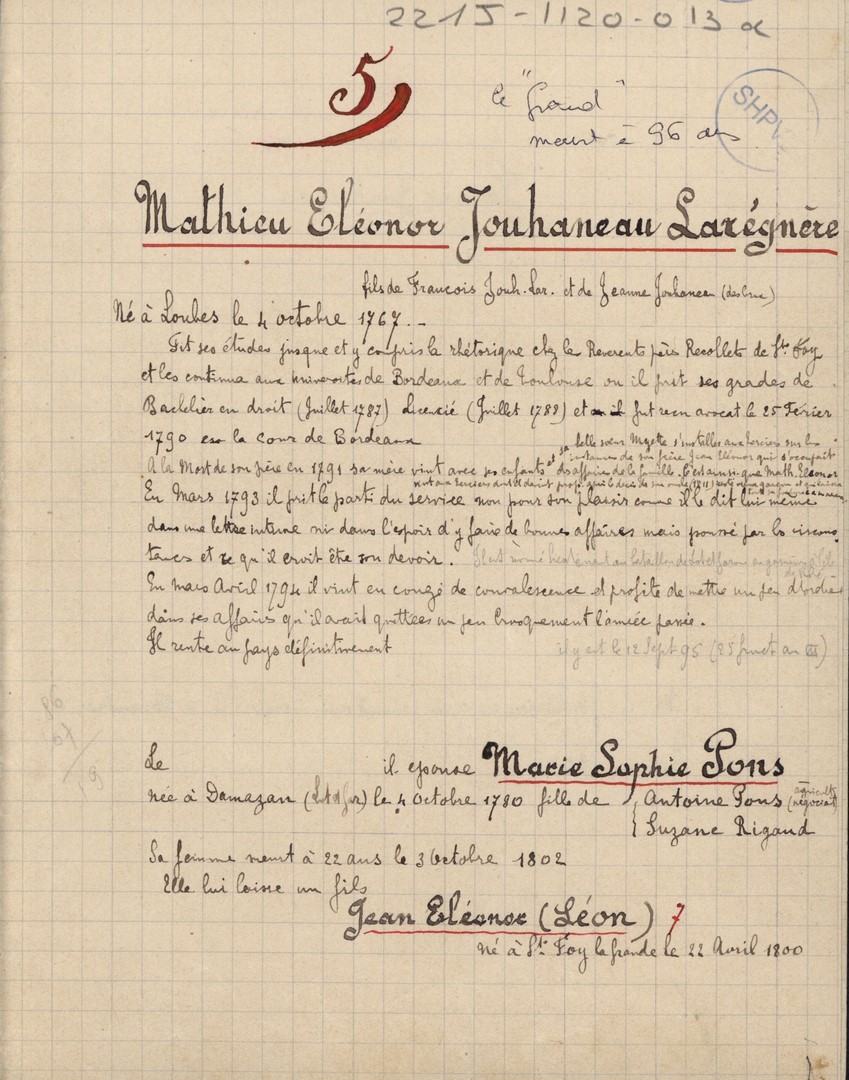 2215-1120-013 α
5
le "Grand"
meurt à 96 ans
SHPV
Mathieu Eléonor Jouhaneau Larégnère
fils de Francois Jouh. Lar. et de Jeanne Jouhaneau
Né à Loubes le 4 octobre 1767.
Fit ses études jusque et y compris la rhétorique chez les Reverents pères Recollets de Ste Foy
et les continua aux universites de Bordeaux et de Toulouse ou il prit ses grades de
Bachelier en droit (Juillet 1787) Licencié (Juillet 1788) et fut recu avocat le 25 Fevrier
1790 en la cour de Bordeaux
sa belle sœur Mazette s'installer aux sur les
instances de son frère Jean Eléonor qui s'occupait
A la Mort de son père en 1791 sa mère vint avec ses enfants et des affaires de la famille. C'est ainsi que Math. Eleonor
En Mars 1793 il prit le parti du service non pour son plaisir comme il le dit lui meme
dans une lettre interne ni dans l'espoir d'y faire de bonnes affaires mais poussé par les circons
tances et ce qu'il croit être son devoir. Il est nommé lieutenant au bataillon
En mars Avril 1794 il vint en congé de convalescence et profite de mettre un peu d'ordre
dans ses affaires qu'il avait quittées un peu brusquement l'année passée.
Il rentre au pays définitivement il y est le 12 Sept 95 (25 fruct an III)
Le il epouse Marie Sophie Pons
née à Damazan (Lot et Gar) le 4 Octobre 1780 fille de { Antoine Pons (agricult négociat)
{ Suzane Rigaud
Sa femme meurt à 22 ans le 3 Octobre 1802
Elle lui laisse un fils
Jean Eléonor (Léon) 7
Né à Ste Foy la Grande le 22 Avril 1800